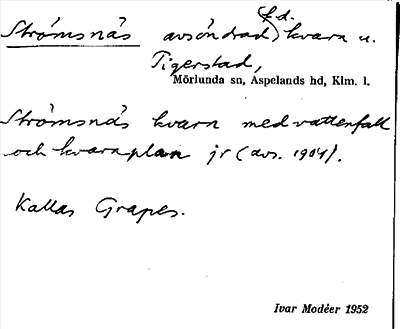 Strömsnäs avsöndrad f.d. kvarn u.
Tigerstad,
Mörlunda sn, Aspelands hd, Klm. l.
Strömsnäs kvarn med vattenfall
och kvarnplan jr (avs. 1904).
Kallas Grapes.
Ivar Modéer 1952